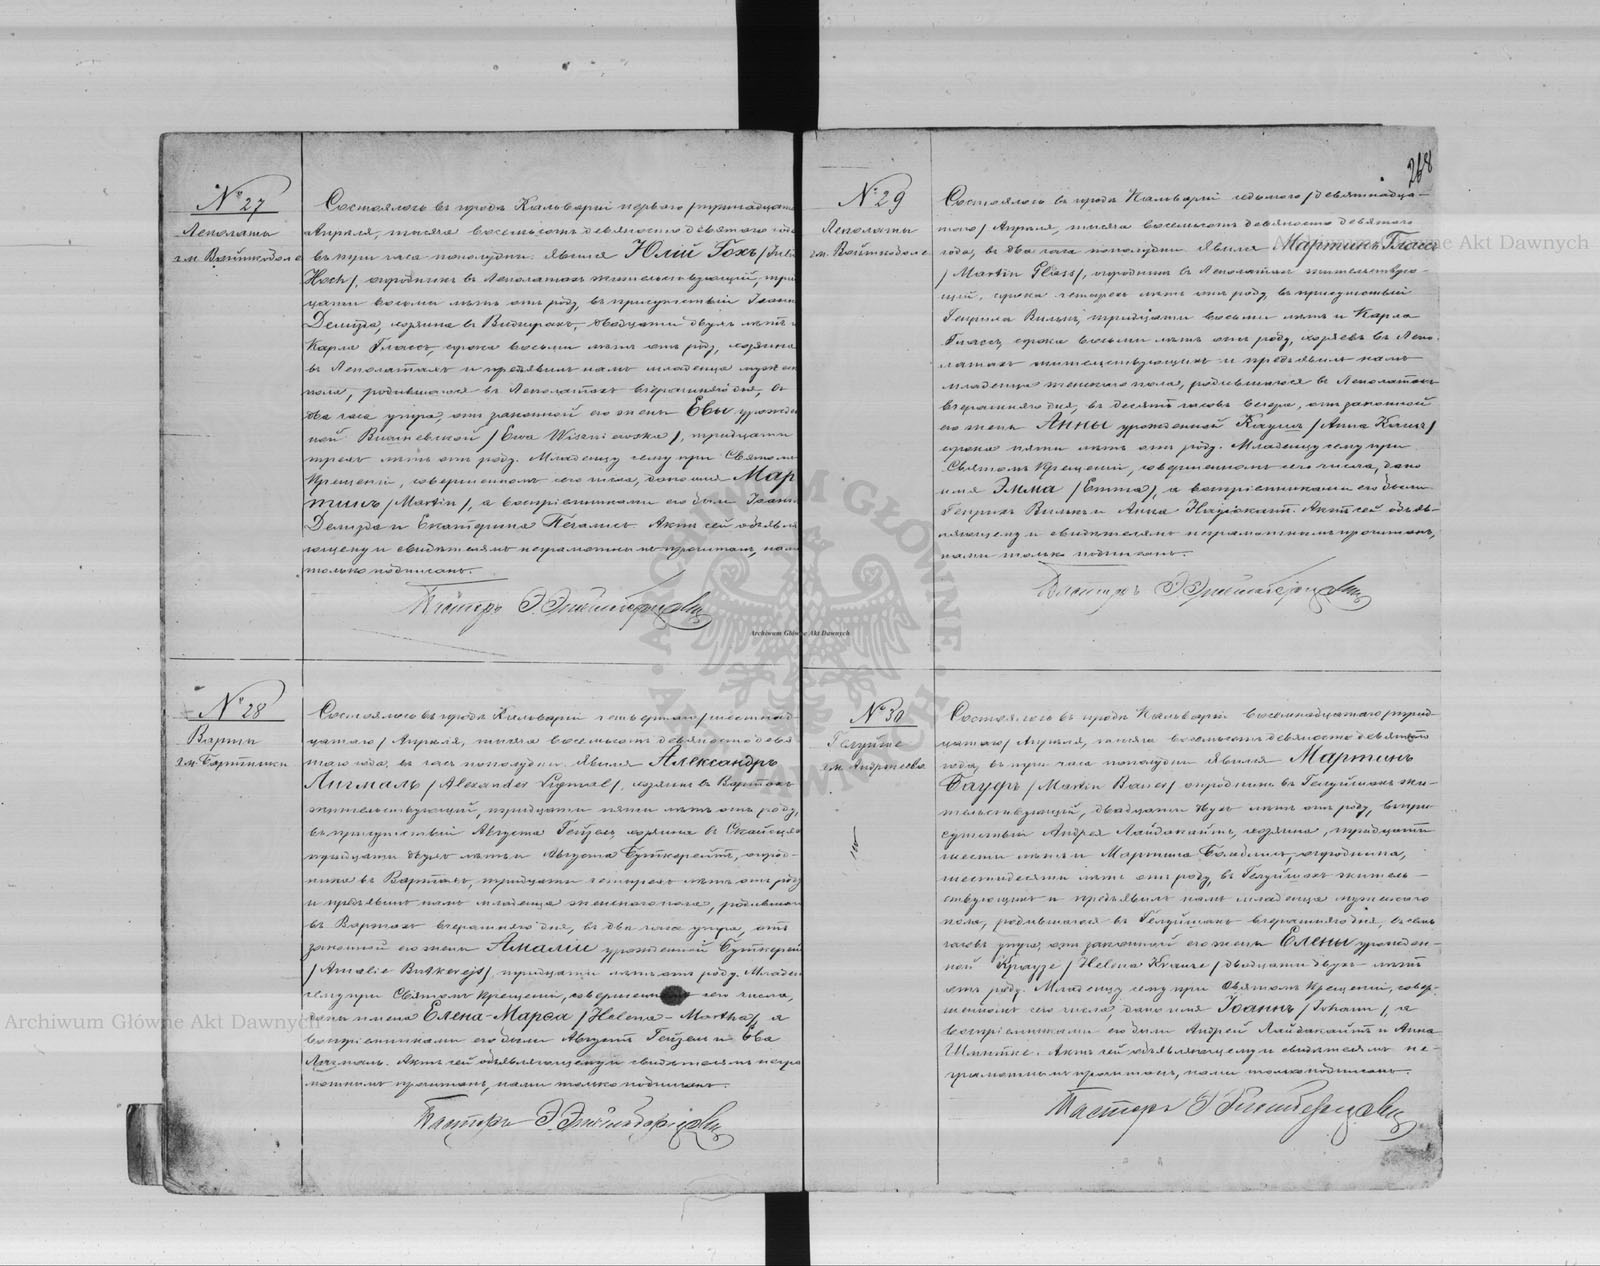 № 27
Лепалаты
гм. Войткоболе
Состоялось въ городѣ Кальваріи перваго /тринадцат
Апрѣля, тысяча восемьсотъ девяносто девятаго года
въ три часа пополудни: явился Юлій Гохъ /Juli
Hoch/, огородникъ въ Лепалатахъ жительствующій, трид
цати восьми лѣтъ отъ роду, въ присутствіи Іоанн
хозяина въ двадцати двухъ лѣтъ и
Карла Гласъ, сорока восьми лѣтъ отъ роду, хозяина
въ Лепалатахъ и предъявилъ намъ младенца мужск
пола, родившагося въ Лепалатахъ вчерашняго дня, въ
два часа утра, отъ законной его жены Евы урожден
ной Вишневской /Ewa Wiszniewska/, тридцати
трехъ лѣтъ отъ роду. Младенцу сему при Святомъ
Крещеніи, совершенномъ сего числа, дано имя Мар
тинъ /Martin/, а воспріемниками его были Іоанн
и Екатерина Актъ сей объявля
ющему и свидѣтелямъ неграмотнымъ прочитанъ, нами
только подписанъ.
Пасторъ
№ 28
Варты
гм. Бартники
Состоялось въ городѣ Кальваріи четвертаго /шестнад
цатаго/ Апрѣля, тысяча восемьсотъ девяносто девя
таго года, въ часъ пополудни. явился Александръ
Лигмалъ /Alexander Ligmal/, хозяинъ въ Вартахъ
жительствующій, тридцати пяти лѣтъ отъ роду,
въ присутствіи Августа хозяина въ
тридцати двухъ лѣтъ и Августа Буткерейтъ, огород-
ника въ Вартахъ, тридцати четырехъ лѣтъ отъ роду
и предъявилъ намъ младенца женскаго пола, родившаго
въ Вартахъ вчерашняго дня, въ два часа утра, отъ
законной его жены Амаліи урожденной Буткерей
/Amalie Butkerejt/, тридцати лѣтъ отъ роду. Младен
сему при Святомъ Крещеніи, совершенномъ сего числа,
даны имена Елена-Марѳа /Helena-Martha/, а
воспріемниками его были Августъ и Ева
Лигмалъ. Актъ сей объявляющему и свидѣтелямъ негра
мотнымъ прочитанъ, нами только подписанъ.
Пасторъ
268
№ 29
Лепалаты
гм. Войткоболе
Состоялось въ городѣ Кальваріи седьмаго /девятнадца-
таго/ Апрѣля, тысяча восемьсотъ девяносто девятаго
года, въ два часа пополудни явился Мартинъ Гласъ
/Martin Glass/, огородникъ въ Лепалатахъ жительствую-
щій, сорока четырехъ лѣтъ отъ роду, въ присутствіи
Генриха Вилькъ, тридцати восьми лѣтъ и Карла
Гласъ, сорока восьми лѣтъ отъ роду, хозяевъ въ Лепа-
латахъ жительствующихъ и предъявилъ намъ
младенца женскаго пола, родившагося въ Лепалатахъ
вчерашняго дня, въ десять часовъ вечера, отъ законной
его жены Анны урожденной /Anna
сорока пяти лѣтъ отъ роду. Младенцу сему при
Святомъ Крещеніи, совершенномъ сего числа, дано
имя Эмма /Emma/, а воспріемниками его были
Генрихъ Вилькъ и Анна Актъ сей объяв-
ляющему и свидѣтелямъ неграмотнымъ прочитанъ,
нами только подписанъ.
Пасторъ
№ 30
гм. Андржеево
Состоялось въ городѣ Кальваріи восемнадцатаго /трид-
цатаго/ Апрѣля, тысяча восемьсотъ девяносто девятаго
года, въ три часа пополудни явился Мартинъ
Бауеръ /Martin Bauer/ огородникъ въ жи-
тельствующій, двадцати двухъ лѣтъ отъ роду, въ при-
сутствіи Андрея хозяина, тридцати
шести лѣтъ и Мартина огородника,
шестидесяти лѣтъ отъ роду, въ житель-
ствующихъ и предъявилъ намъ младенца мужскаго
пола, родившагося въ вчерашняго дня, въ семь
часовъ утра, отъ законной его жены Елены урожден-
ной Краузе /Helena Krause/ двадцати двухъ лѣтъ
отъ роду. Младенцу сему при Святомъ Крещеніи, совер-
шенномъ сего числа, дано имя Іоаннъ /Johann/, а
воспріемниками его были Андрей и Анна
Шмитке. Актъ сей объявляющему и свидѣтелямъ не-
грамотнымъ прочитанъ, нами только подписанъ.
Пасторъ
Archiwum Główne Akt Dawnych
Archiwum Główne Akt Dawnych
Archiwum Główne Akt Dawnych
ARCHIWUM GŁÓWNE AKT DAWNYCH